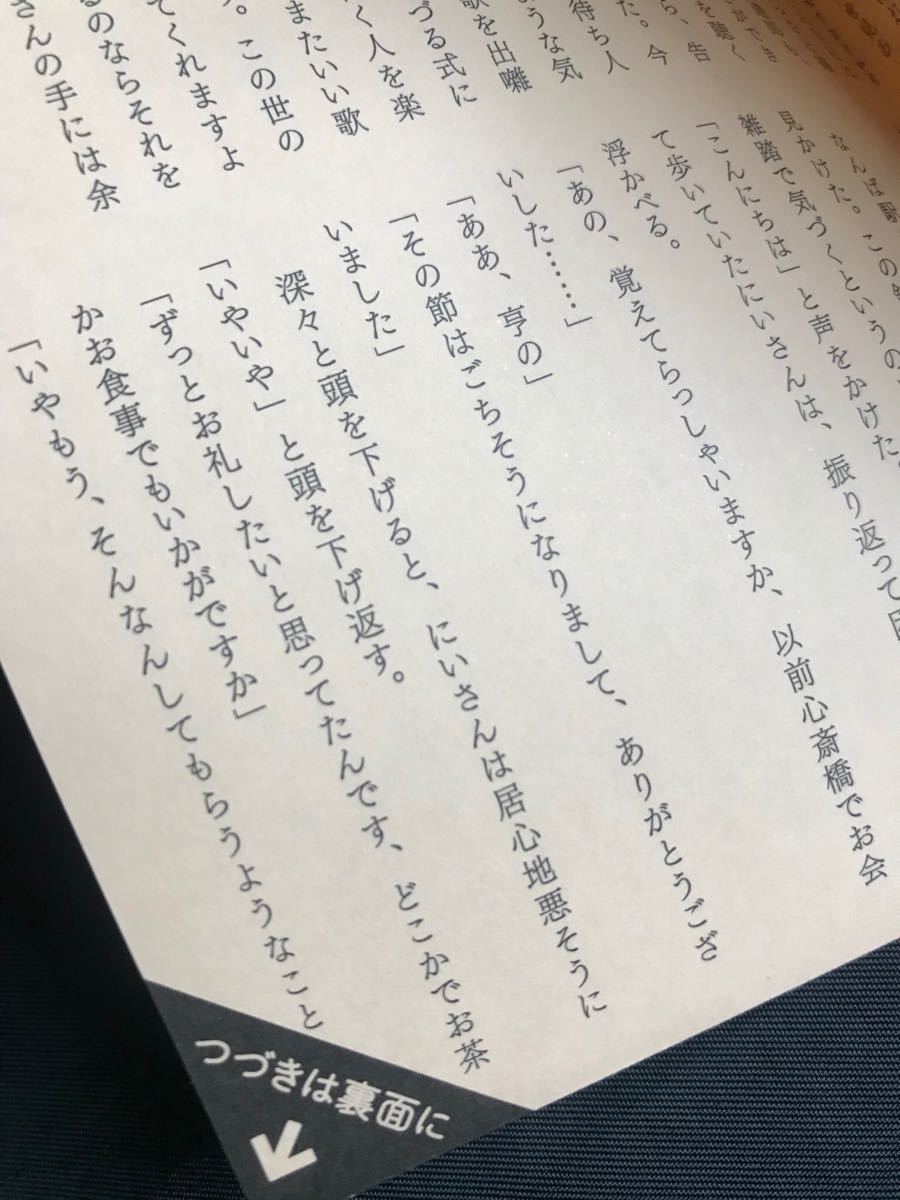 を聴く
ら、告
た。今
待ち人
ような気
歌を出囃
づる式に
く人を楽
またいい歌
す。この世の
てくれますよ
るのならそれを
さんの手には余
見かけた。この
雑路で気づくというの
「こんにちは」と声をかけた。
て歩いていたにいさんは、振り返って
浮かべる。
「あの、覚えてらっしゃいますか、以前心斎橋でお会
いした……」
「ああ、亨の」
「その節はごちそうになりまして、ありがとうござ
いました」
深々と頭を下げると、にいさんは居心地悪そうに
「いやいや」と頭を下げ返す。
「ずっとお礼したいと思ってたんです、どこかでお茶
かお食事でもいかがですか」
「いやもう、そんなんしてもらうようなこと
つづきは裏面に